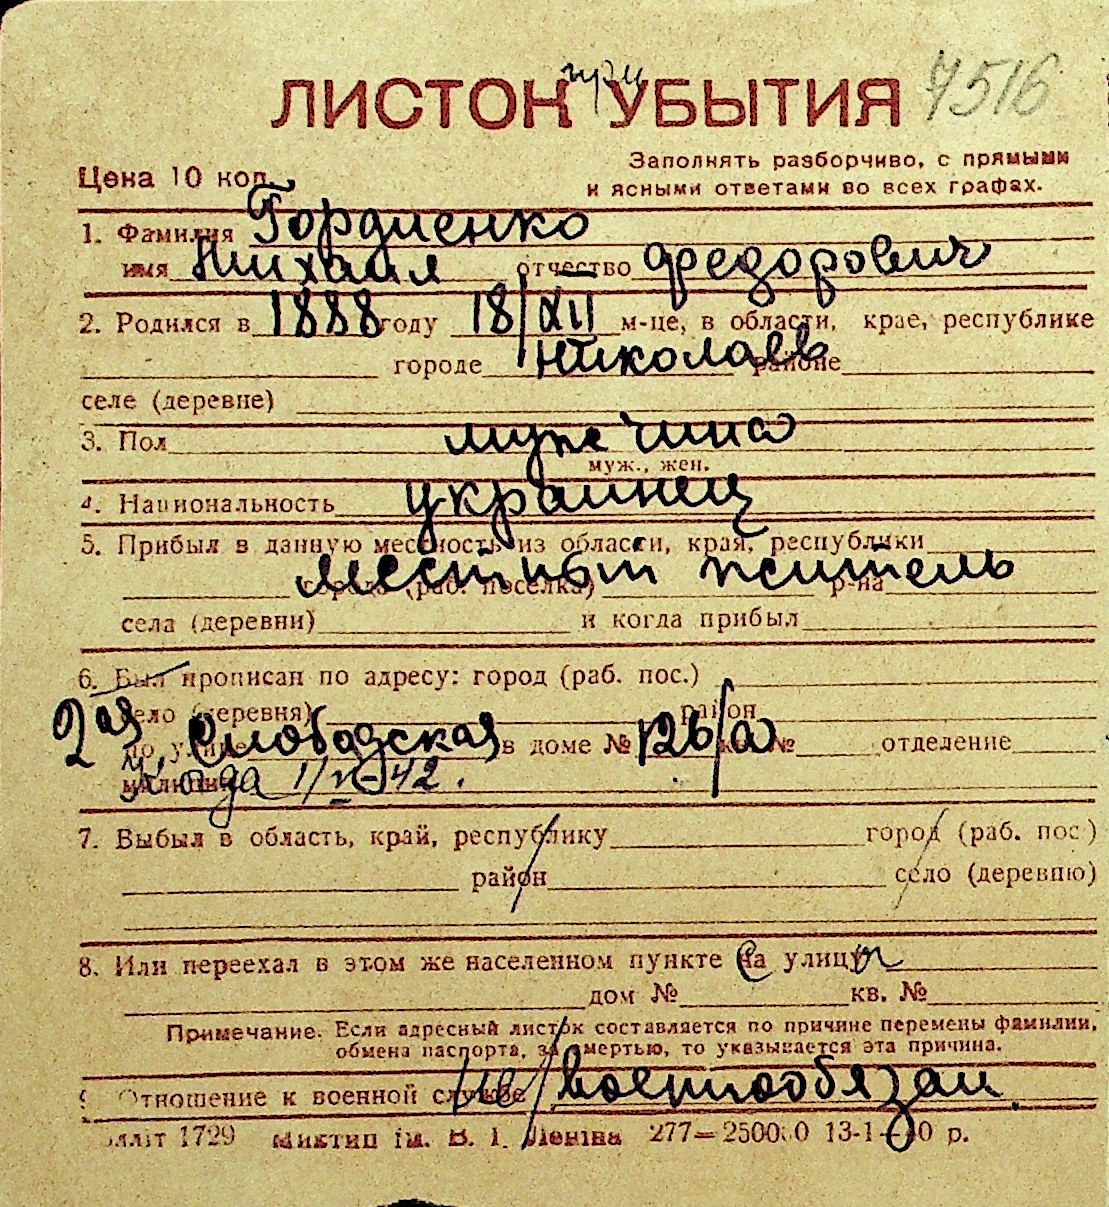 при 7516
ЛИСТОК УБЫТИЯ
Заполнять разборчиво, с прямыми
Цена 10 коп. и ясными ответами во всех графах.
1. Фамилия Гордиенко
имя Михаил отчество Федорович
2. Родился в 1888 году 18/XII м-це, в области, крае, республике
городе Николаев районе
селе (деревне)
3. Пол мужчина
муж., жен.
4. Национальность украинец
5. Прибыл в данную местность из области, края, республики
местный житель
города (раб. поселка) р-на
села (деревни) и когда прибыл
6. Был прописан по адресу: город (раб. пос.)
село (деревня) район
2ая по улице Слободская в доме № 126/а кв. № отделение
милиции года 1/V-42.
7. Выбыл в область, край, республику город (раб. пос.)
район село (деревню)
8. Или переехал в этом же населенном пункте на улицу
дом № кв. №
Примечание. Если адресный листок составляется по причине перемены фамилии,
обмена паспорта, за смертью, то указывается эта причина.
9 Отношение к военной службе не/военнообязан.
1729 Миктип ім. В. І. Леніна 277—250000 13-1-40 р.